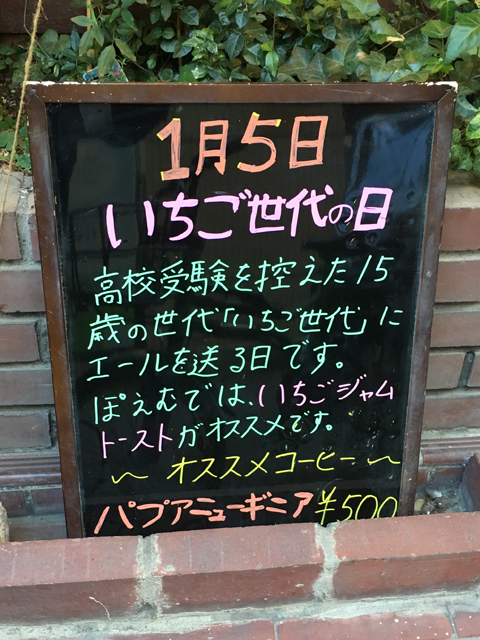 1月5日
いちご世代の日
高校受験を控えた15
歳の世代「いちご世代」に
エールを送る日です。
ぽえむでは、いちごジャム
トーストがオススメです。
〜 オススメコーヒー 〜
パプアニューギニア ¥500